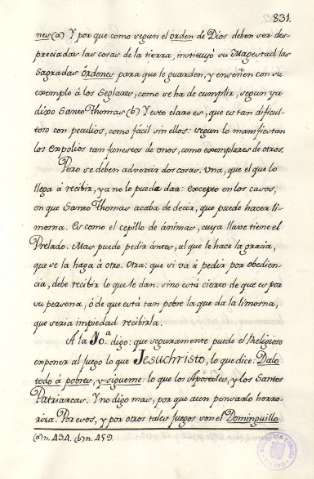 831.
nes (a) Y por que como segun el orden de Dios deben ser des-
preciadas las cosas de la tierra, instituyó su Magestad las
Sagradas Órdenes para que le guarden, y enseñen con su
exemplo á los Seglares, como se ha de cumplir, segun ya
dixo Santo Thomas (b) Y esto claro es, que es tan dificul-
toso con peculios, como fácil sin ellos: segun lo manifiestan
los expolios tan funestos de unos, como exemplares de otros.
Pero se deben advertir dos cosas. Una, que el que lo
llega á recibir, ya no le pueda dar: excepto en los casos,
en que Santo Thomas acaba de decir, que puede hacer li-
mosna. Es como el cepillo de ánimas, cuya llave tiene el
Prelado. Mas puede pedir ántes, al que le hace la gracia,
que se la haga á otro. Otra: que si va á pedir por obedien-
cia, debe recibir lo que le dan: sino está cierto de que es por
su persona, ó de que está tan pobre la que da la limosna,
que seria impiedad recibirla.
A la 10.ª digo: que seguramente puede el Religioso
exponer al fuego lo que Jesuchristo, lo que dice: Dalo
todo á pobres, y sígueme: lo que los Apóstoles, y los Santos
Patriarcas. Y no digo mas, por que aun pensarlo horro-
riza. Por esos, y por otros tales fuegos son el Dominguillo
(a) n. 434. (b) n. 459.